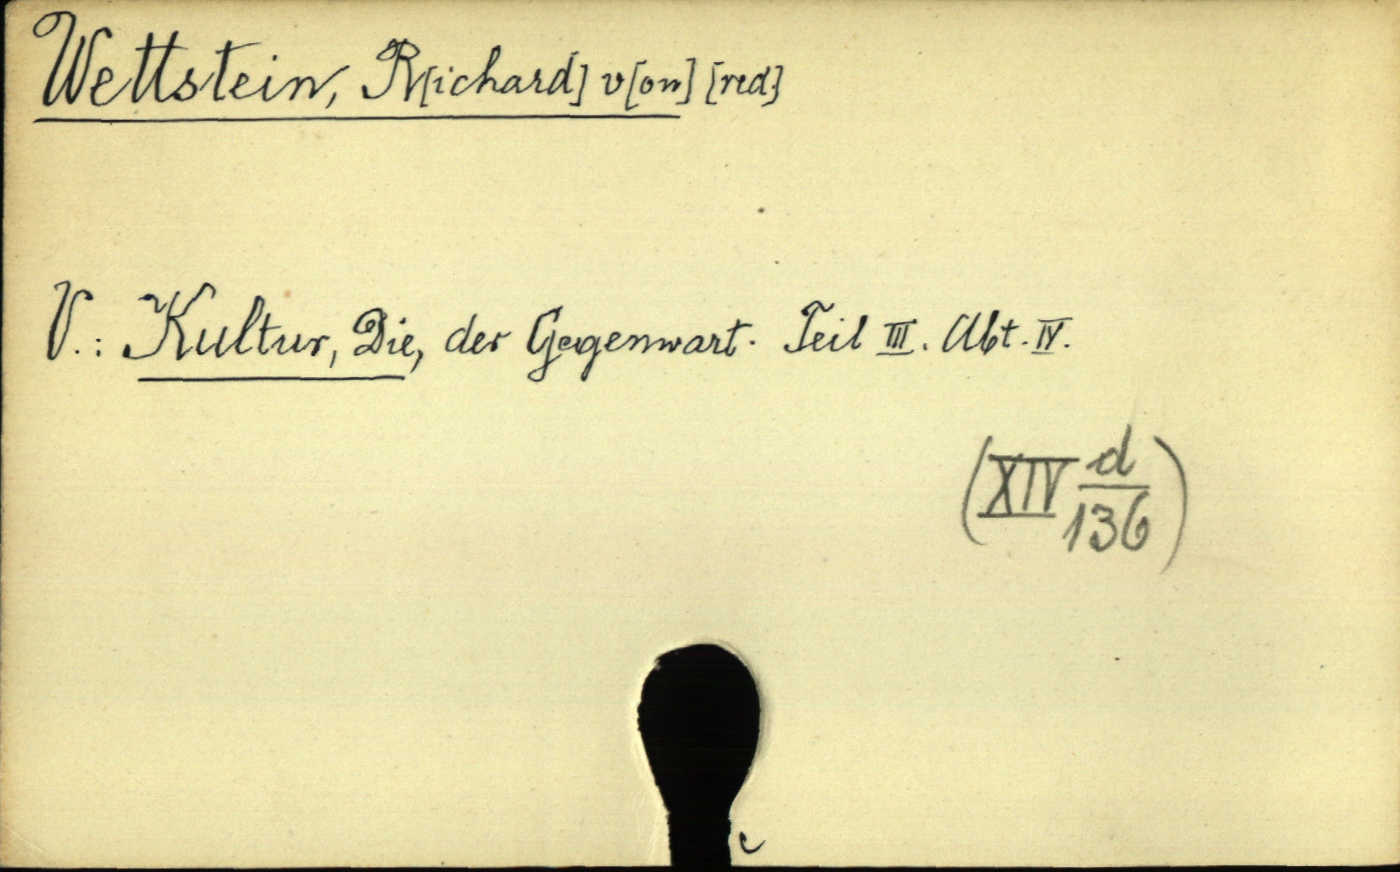 Wettstein, R[ichard] v[on] [red]
V.: Kultur, Die, der Gegenwart. Teil III. Abt. IV.
(XIV d/136)
c